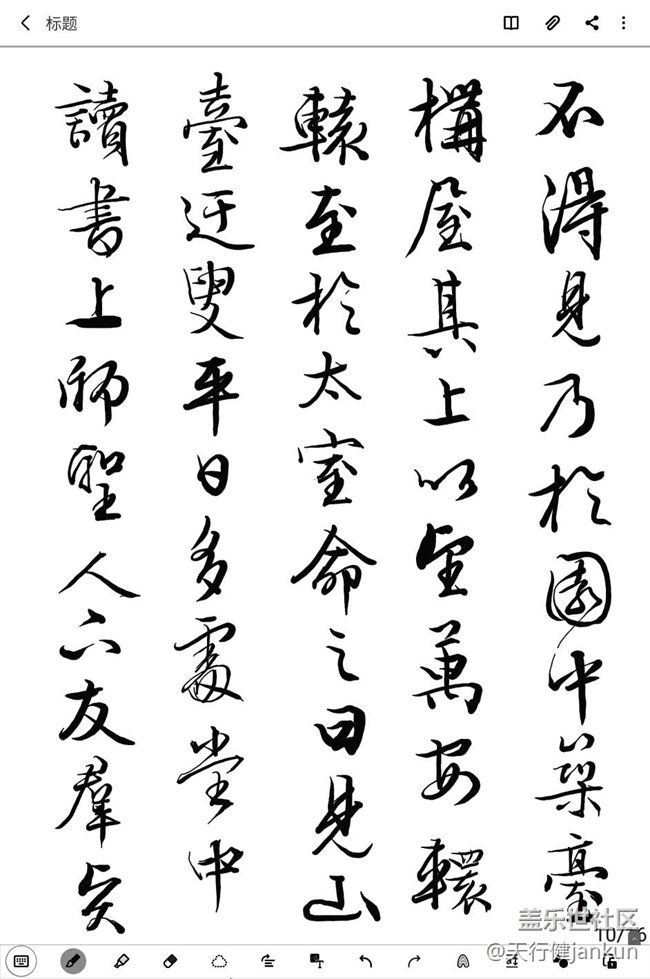 标题
不得見乃於園中築臺
構屋其上以望萬安轘
轅至於太室命之曰見山
臺迂叟平日多處堂中
讀書上師聖人下友羣賢
盖乐世社区
@天行健jankun